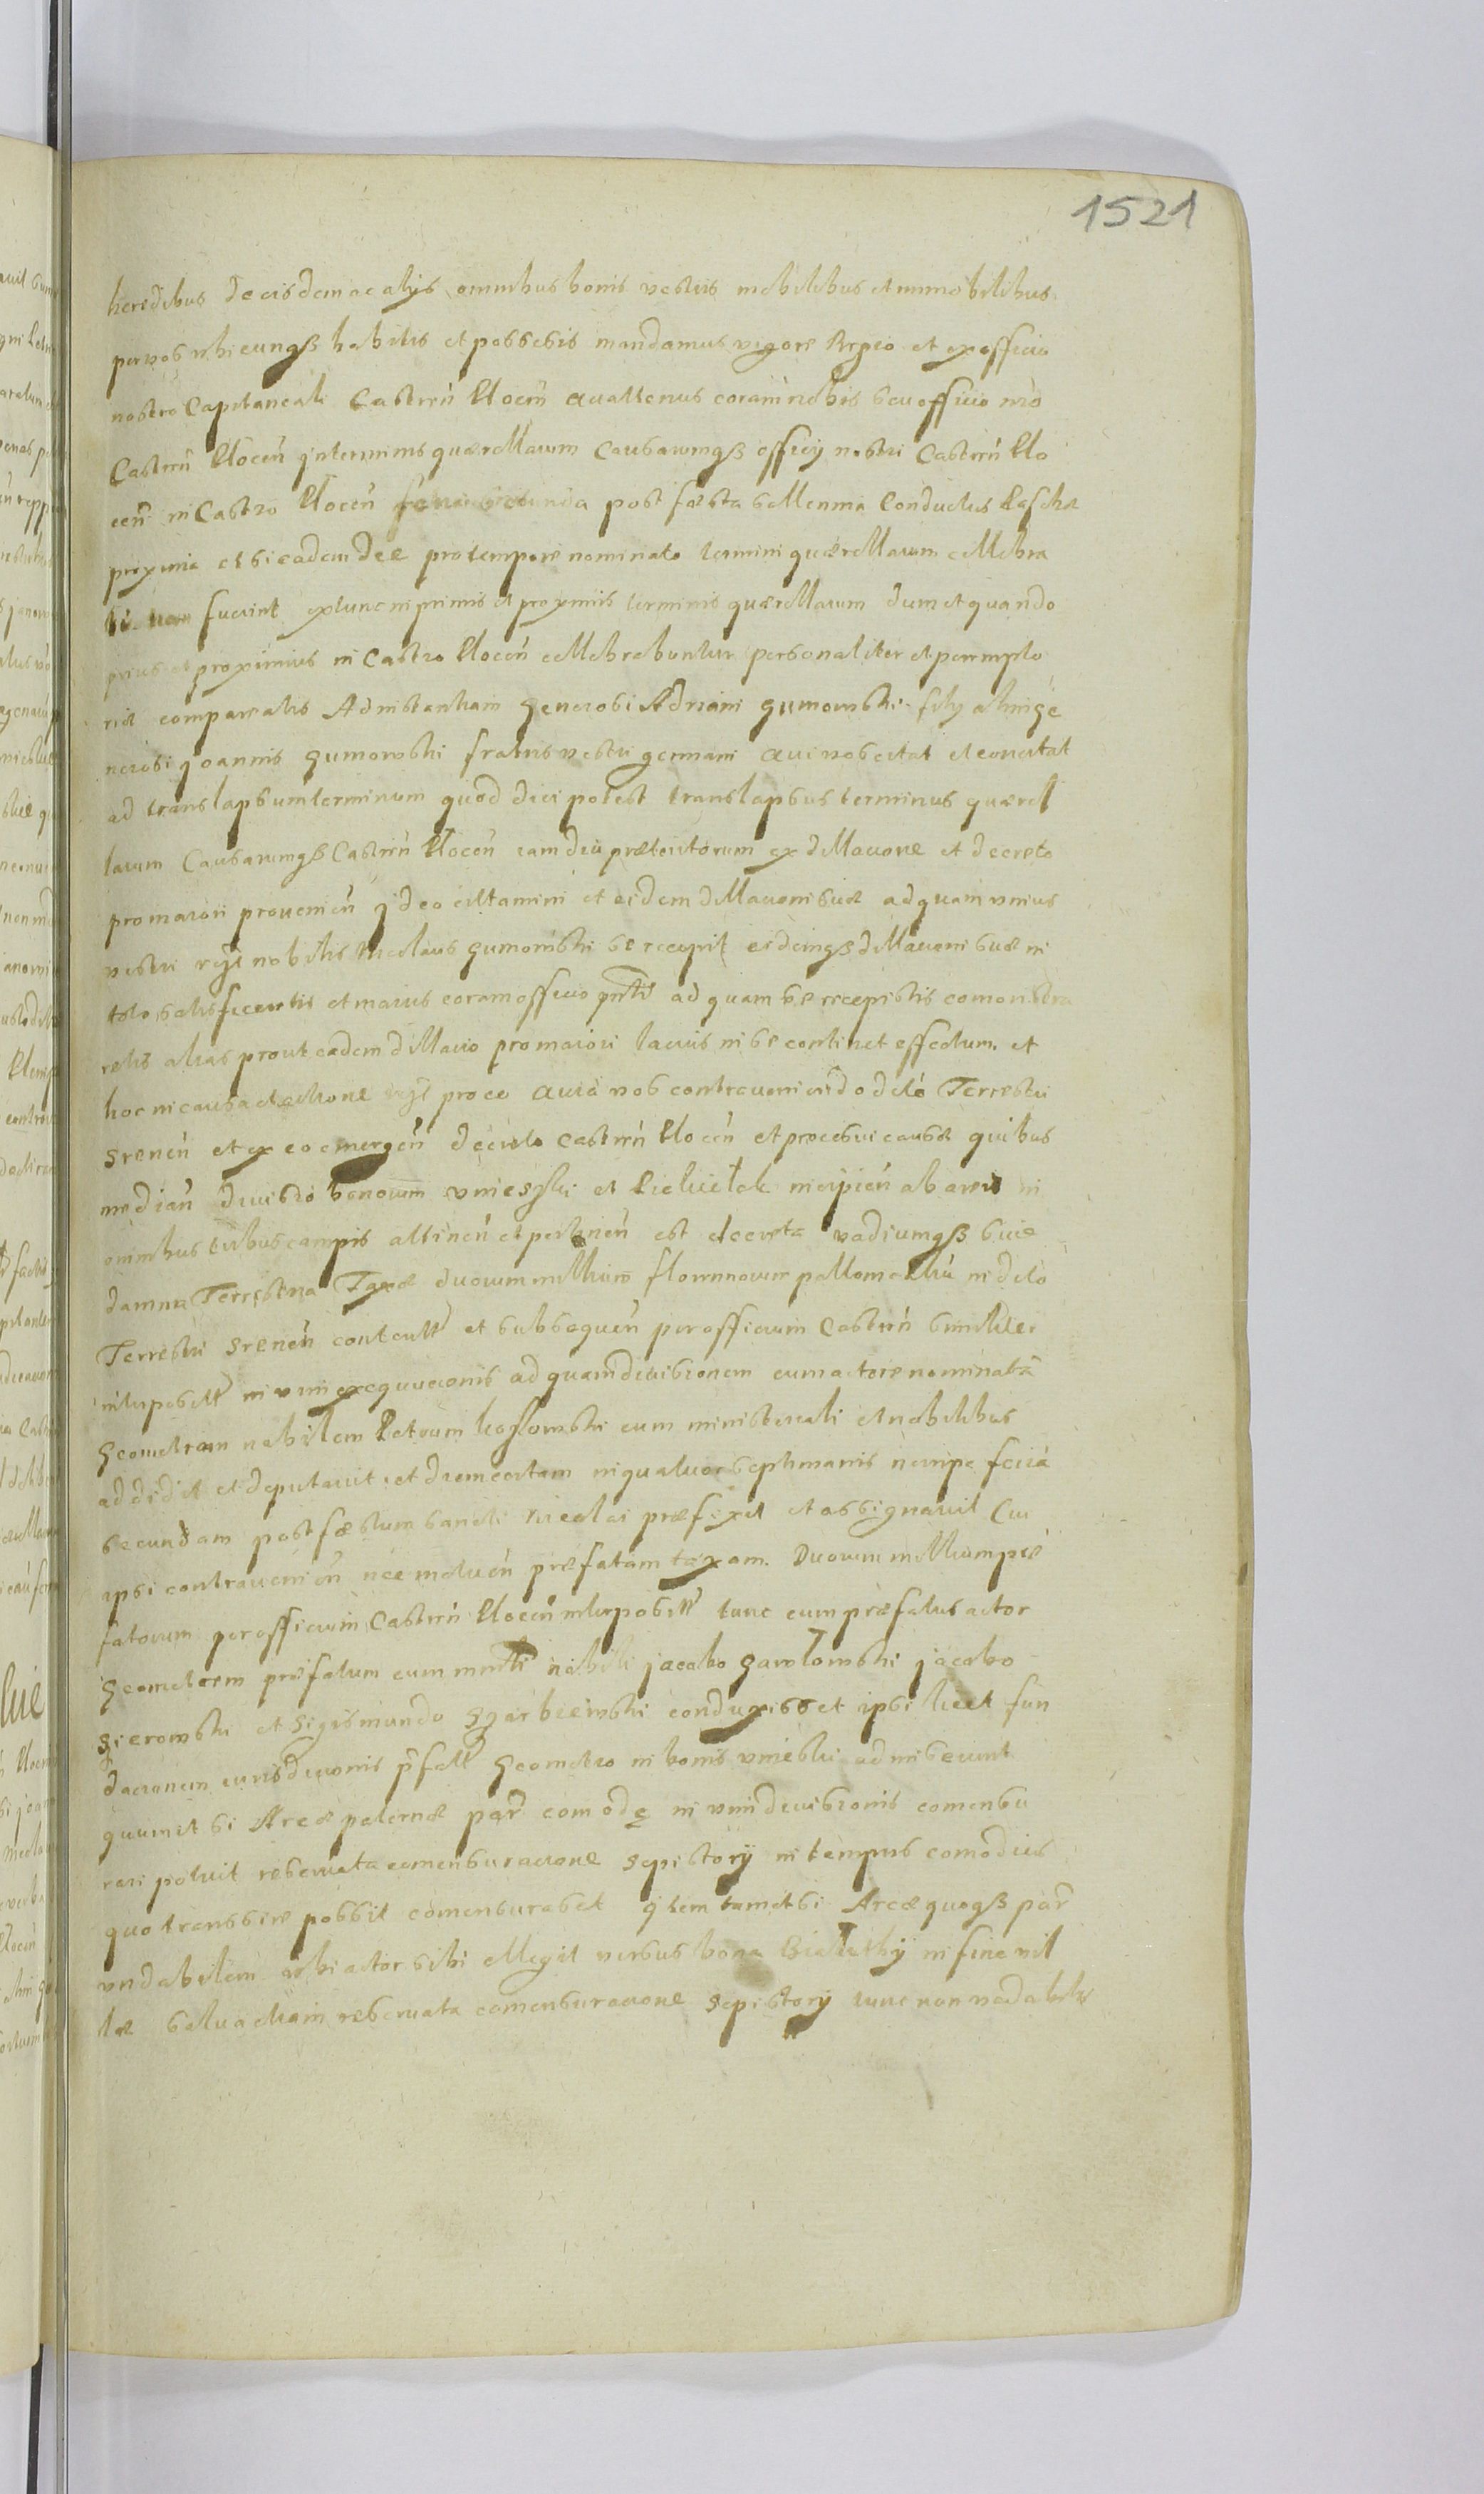 1521
heredibus de eisdem ac alys omnibus bonis vestris mobilibus et immobilibus
per vos ubicunqß habitis et possesis mandamus vigore Regio et ex officio
nostro Capitaneali Castren Plocen quattenus coram nobis seu officio nro
Castren Plocen in terminis quærellarum Causarumqß officy nostri Castren Plo
cen in Castro Plocen feria secunda post fæsta sollennia Conductus Paschæ
proxima et si eadem die pro tempore nominato termini quærellarum cellebra
ti non fuerint extunc in primis et proximis terminis quærellarum dum et quando
prius et proximius in Castro Plocen cellebrabuntur personaliter et peremplo
rie compareatis Ad instantiam Generosi Adriani Gumowski fily olim ge
nerosi Joannis Gumowski fratris vestri germani qui vos citat et concitat
ad translapsum terminum quod dici potest translapsus terminus quærel
larum Causarumqß Castren Plocen iam diu præteritorum ex dillacione et decreto
pro maiori provenien Ideo cittamini ut eidem dillacioni suæ ad quam unius
vestri nobilis Nicolaus Gumowski se recepit eidemqß dillacioni suæ in
toto satisfaceretis et maius coram officio pnti ad quam se recepistis comonstra
retis alias prout eadem dillacio pro maiori latius in se continet effectum. et
hoc in causa et actione pro eo quia vos contravenien do dcto Terrestri
Srenen et ex eo emergen decreto Castren Plocen et processui causæ quibus
median divisio bonorum Umieski et Piekiełek incipien ab areis in
omnibus tribus campis attinen et pertinen est decreta vadiumqß sive
damna Terrestria Taxæ duorum millium florenorum pollonicaliu in dcto
Terrestri Srenen content et subsequen per officium Castren similiter
interposit in vim exequucionis ad quam divisionem cum actore nominato
Geometram nobilem Petrum Kosłowski cum ministeriali et nobilibus
addidit et deputavit et diem certam in quatuor septimanis nempe feria
secundam post fæstum sancti Nicolai præfixit et assignavit Cui
ipsi contravenien nec metuen præfatam taxam. Duorum millium præ
fatorum per officium Castren Plocen interposit tunc cum præfatus actor
Geometrem præfatum cum mntli nobili Jacobo Gawłowski Jacobo
Sierowski et Sigismundo Sgarbiewski conduxisset ipsi licet fun
dacionem iurisdicionis pfatt Geometro in bonis Umieski admiserunt
quum etsi Areæ paternæ par comode in vim divisionis comensu
rari potuit reservata comensuracione Sepistory in tempus comodius
quo transsire possit comensurasset Item tametsi Areæ quoqß par
undabilem ubi actor sibi ellegit versus bona in fine vil
læ salua etiam reservata comensuracione Sepistory tunc non vadabilis